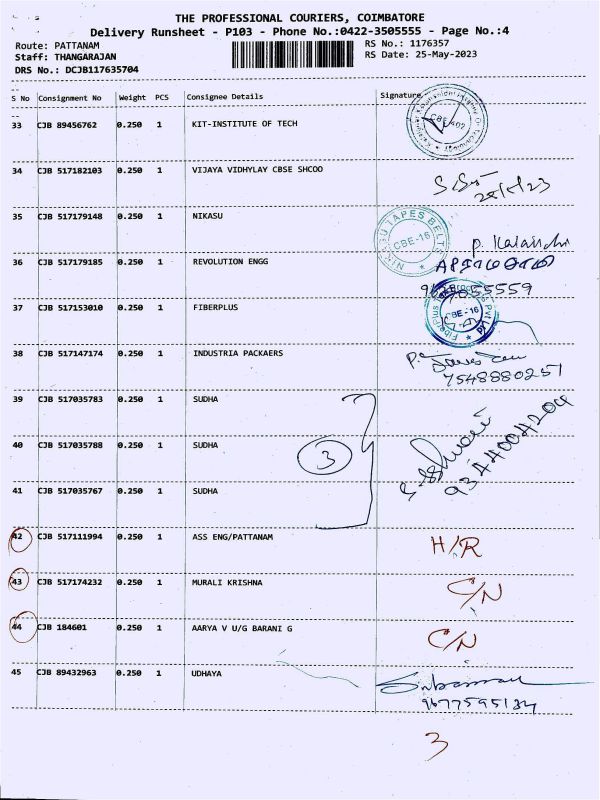 THE PROFESSIONAL COURIERS, COIMBATORE
Delivery Runsheet - P103 - Phone No.:0422-3505555 - Page No.:4
Route: PATTANAM
RS No.: 1176357
Staff: THANGARAJAN
RS Date: 25-May-2023
DRS No.: DCJB117635704
S No Consignment No Weight PCS Consignee Details Signature
33 CJB 89456762 0.250 1 KIT-INSTITUTE OF TECH
34 CJB 517182103 0.250 1 VIJAYA VIDHYLAY CBSE SHCOO
35 CJB 517179148 0.250 1 NIKASU
TAPES BELT
CBE-16
36 CJB 517179185 0.250 1 REVOLUTION ENGG
37 CJB 517153010 0.250 1 FIBERPLUS
CBE-16
38 CJB 517147174 0.250 1 INDUSTRIA PACKAERS
7548880251
39 CJB 517035783 0.250 1 SUDHA
40 CJB 517035788 0.250 1 SUDHA
3
9344004204
41 CJB 517035767 0.250 1 SUDHA
42 CJB 517111994 0.250 1 ASS ENG/PATTANAM H/R
43 CJB 517174232 0.250 1 MURALI KRISHNA C/N
44 CJB 184601 0.250 1 AARYA V U/G BARANI G C/N
45 CJB 89432963 0.250 1 UDHAYA
3